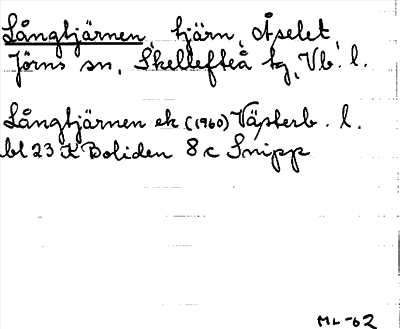 Långtjärnen, tjärn, Åselet,
Jörns sn, Skellefteå tg, Vb. l.
Långtjärnen ek (1960) Västerb. l.
bl 23 K Boliden 8 c Snipp
ML-62